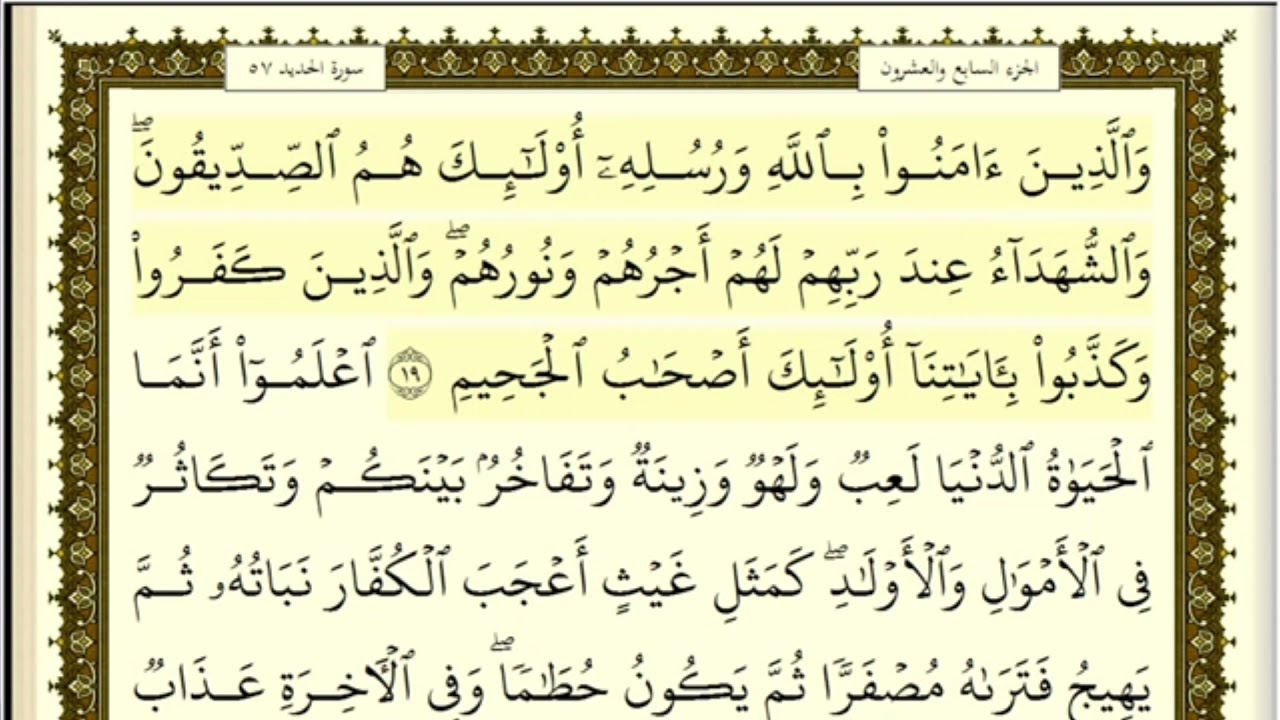 الجزء السابع والعشرون
سورة الحديد ٥٧
وَٱلَّذِينَ ءَامَنُوا۟ بِٱللَّهِ وَرُسُلِهِۦٓ أُو۟لَـٰٓئِكَ هُمُ ٱلصِّدِّيقُونَ ۖ
وَٱلشُّهَدَآءُ عِندَ رَبِّهِمْ لَهُمْ أَجْرُهُمْ وَنُورُهُمْ ۖ وَٱلَّذِينَ كَفَرُوا۟
وَكَذَّبُوا۟ بِـَٔايَـٰتِنَآ أُو۟لَـٰٓئِكَ أَصْحَـٰبُ ٱلْجَحِيمِ ١٩ ٱعْلَمُوٓا۟ أَنَّمَا
ٱلْحَيَوٰةُ ٱلدُّنْيَا لَعِبٌ وَلَهْوٌ وَزِينَةٌ وَتَفَاخُرٌۢ بَيْنَكُمْ وَتَكَاثُرٌ
فِى ٱلْأَمْوَٰلِ وَٱلْأَوْلَـٰدِ ۖ كَمَثَلِ غَيْثٍ أَعْجَبَ ٱلْكُفَّارَ نَبَاتُهُۥ ثُمَّ
يَهِيجُ فَتَرَىٰهُ مُصْفَرًّا ثُمَّ يَكُونُ حُطَـٰمًا ۖ وَفِى ٱلْـَٔاخِرَةِ عَذَابٌ